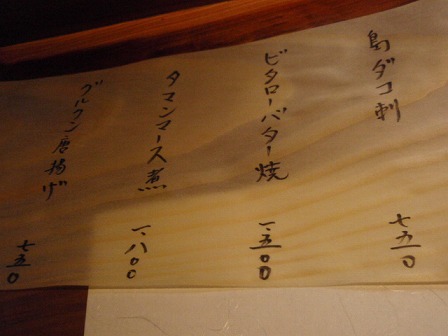 島ダコ刺 七五〇
ビタローバター焼 一、五〇〇
タマンマース煮 一、八〇〇
グルクン唐揚げ 七五〇